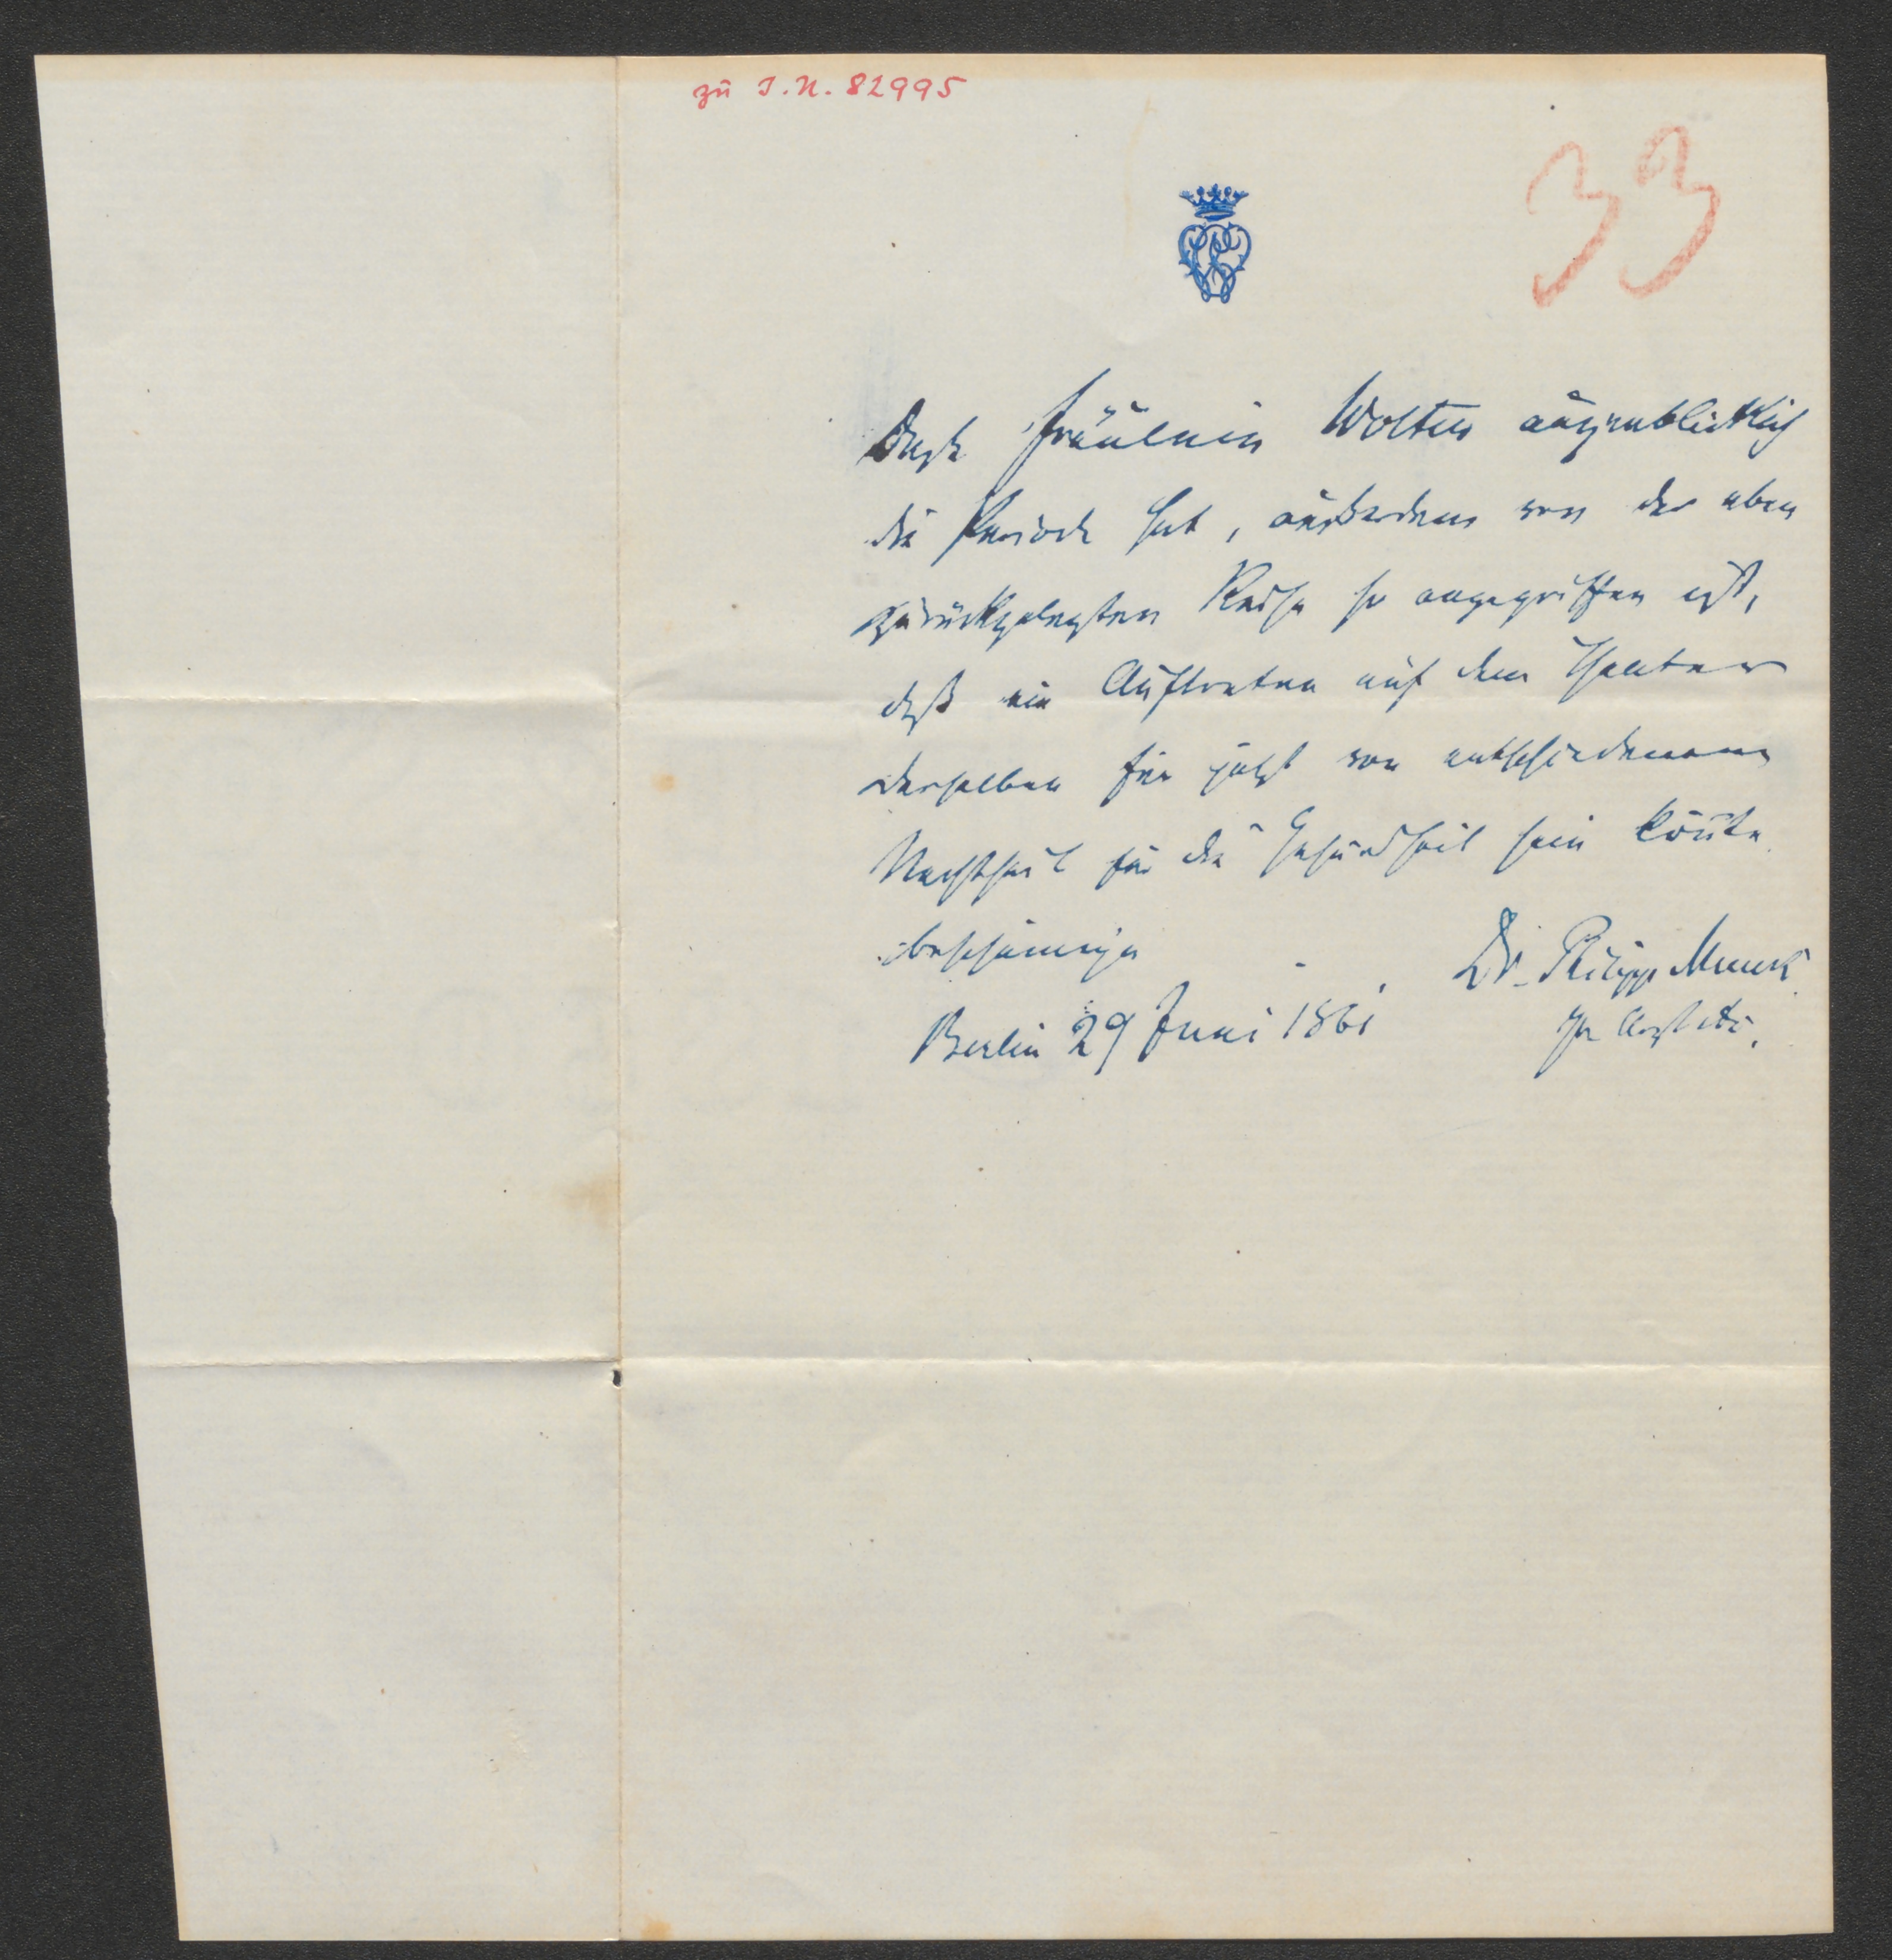 zu I.N. 82995
33
Daß Fräulein Wolter augenblicklich
die Periode hat, außerdem von der eben
zurückgelegten Reise so angegriffen ist,
daß ein Auftreten auf dem Theater
derselben für jetzt von entschiedenem
Nachtheil für die Gesundheit sein könte
bescheinige
Dr. Philipp Munk
Berlin 29 Juni 1861
pr Arzt etc.